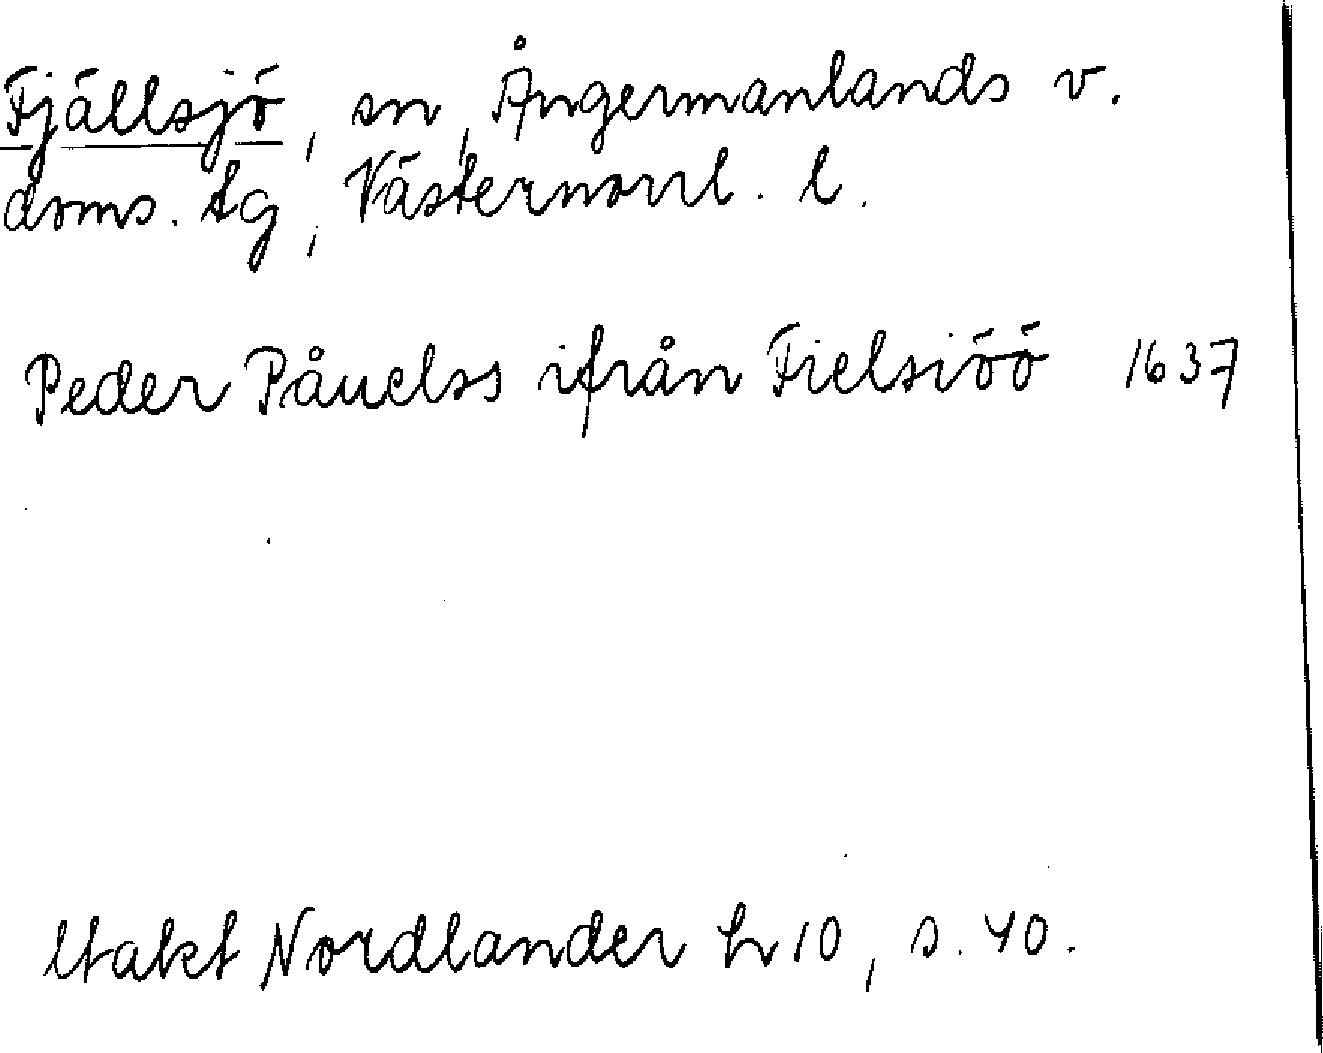 Fjällsjö, sn, Ångermanlands v.
doms. tg, Västernorrl. l.
Peder Påuelss ifrån Fielsiöö 1637
Utakt Nordlander h 10, s. 40.